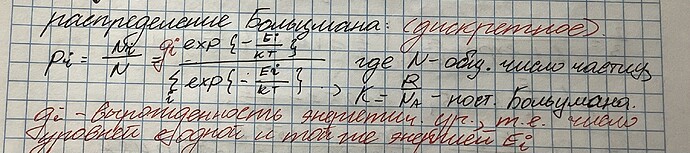 распределение Больцмана: (дискретное)
pi = Ni/N = gi exp{-Ei/кт} / Σi exp{-Ei/кт}, где N - общ. число частиц,
K = R/NA - пост. Больцмана.
gi - вырожденность энергетич. ур., т.е. число
уровней с одной и той же энергией Ei